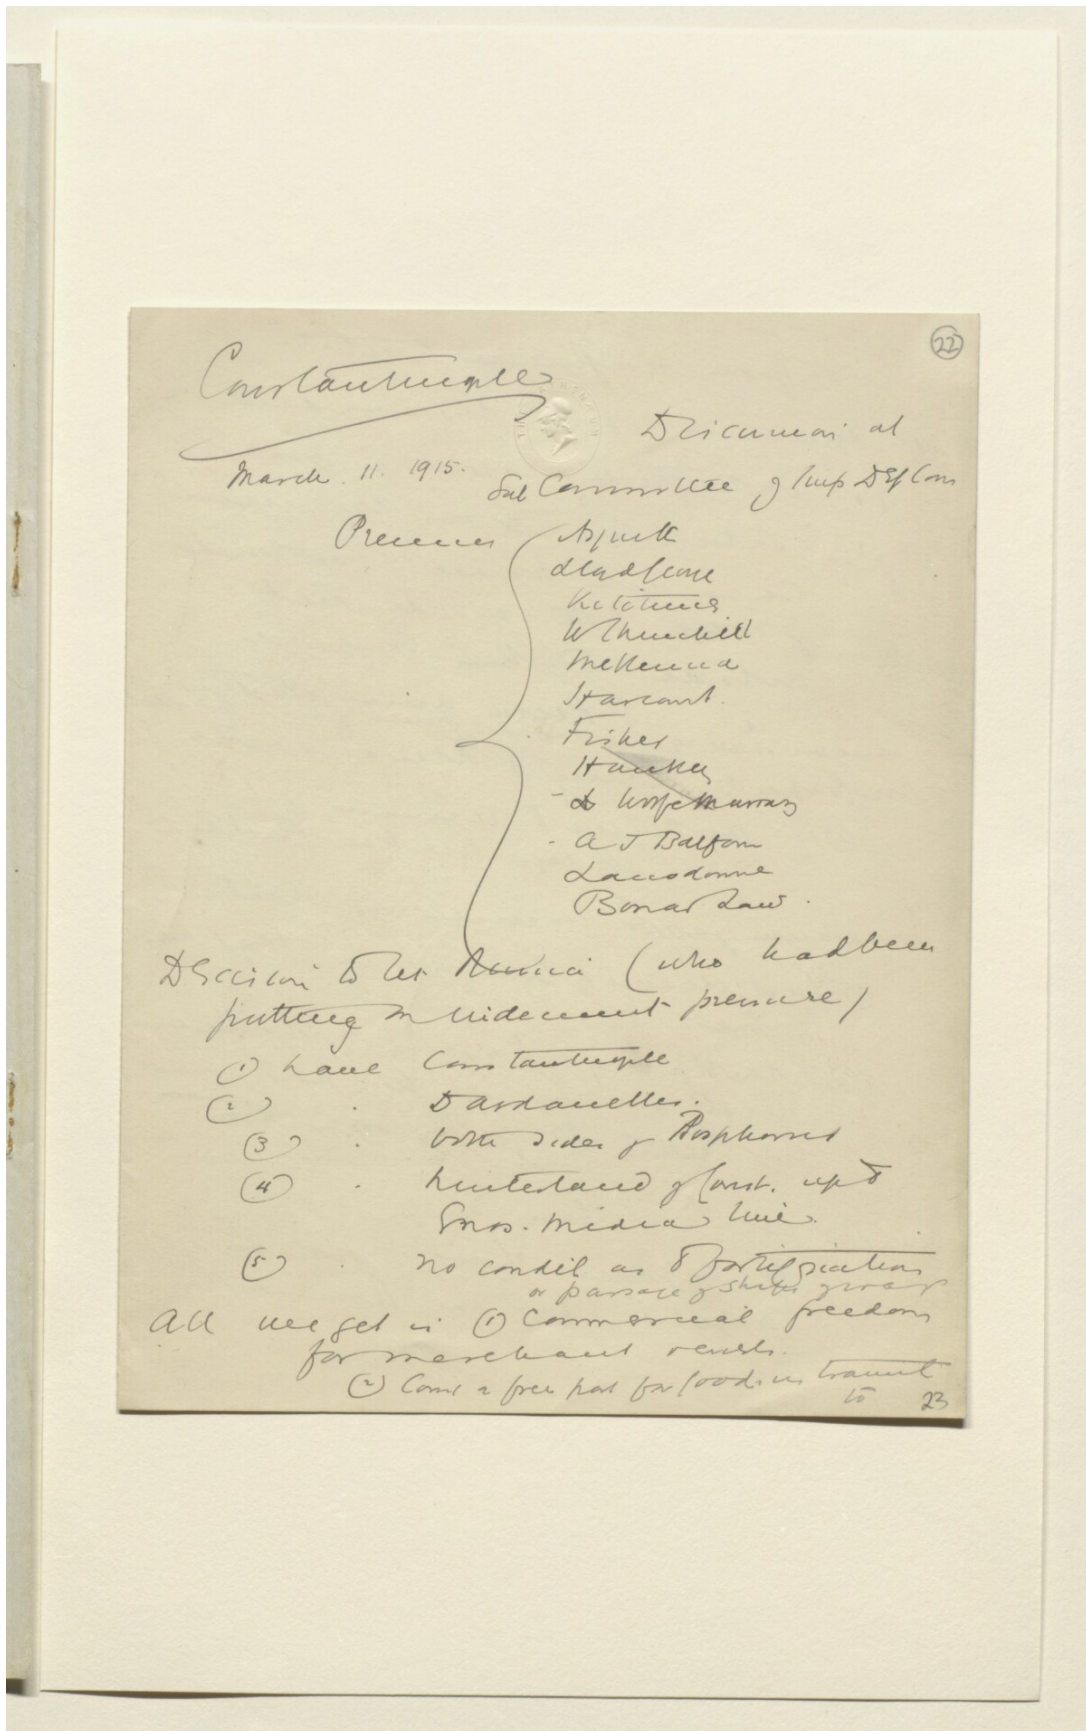 22
Constantinople
Discussion at
March. 11. 1915.
Sub Committee of Imp Def Com
Present
Asquith
Lloyd George
Kitchener
W Churchill
McKenna
Harcourt.
Fisher
Hankey
- Wolfe Murray
- A J Balfour
Lansdowne
Bonar Law.
Decision to let Russia (who had been
putting on vehement pressure)
(1) have Constantinople
(2) . Dardanelles.
(3) . both sides of Bosphorus
(4) . hinterland of Const. up to
Enos. Midia line.
(5) . no condit as to fortification
or passage of ships of war
All we get is (1) Commercial freedom
for merchant vessels.
(2) Const a free port for goods in transit
to 23